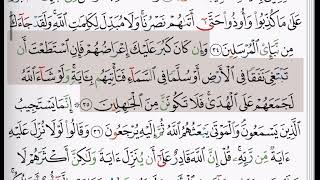 عَلَىٰ مَا كُذِّبُوا۟ وَأُوذُوا۟ حَتَّىٰٓ أَتَىٰهُمْ نَصْرُنَا ۚ وَلَا مُبَدِّلَ لِكَلِمَـٰتِ ٱللَّهِ ۚ وَلَقَدْ جَآءَكَ
مِن نَّبَإِى۟ ٱلْمُرْسَلِينَ ٣٤ وَإِن كَانَ كَبُرَ عَلَيْكَ إِعْرَاضُهُمْ فَإِنِ ٱسْتَطَعْتَ أَن
تَبْتَغِىَ نَفَقًا فِى ٱلْأَرْضِ أَوْ سُلَّمًا فِى ٱلسَّمَآءِ فَتَأْتِيَهُم بِـَٔايَةٍ ۚ وَلَوْ شَآءَ ٱللَّهُ
لَجَمَعَهُمْ عَلَى ٱلْهُدَىٰ ۚ فَلَا تَكُونَنَّ مِنَ ٱلْجَـٰهِلِينَ ٣٥ إِنَّمَا يَسْتَجِيبُ
ٱلَّذِينَ يَسْمَعُونَ ۘ وَٱلْمَوْتَىٰ يَبْعَثُهُمُ ٱللَّهُ ثُمَّ إِلَيْهِ يُرْجَعُونَ ٣٦ وَقَالُوا۟ لَوْلَا نُزِّلَ عَلَيْهِ
ءَايَةٌ مِّن رَّبِّهِۦ ۚ قُلْ إِنَّ ٱللَّهَ قَادِرٌ عَلَىٰٓ أَن يُنَزِّلَ ءَايَةً وَلَـٰكِنَّ أَكْثَرَهُمْ لَا